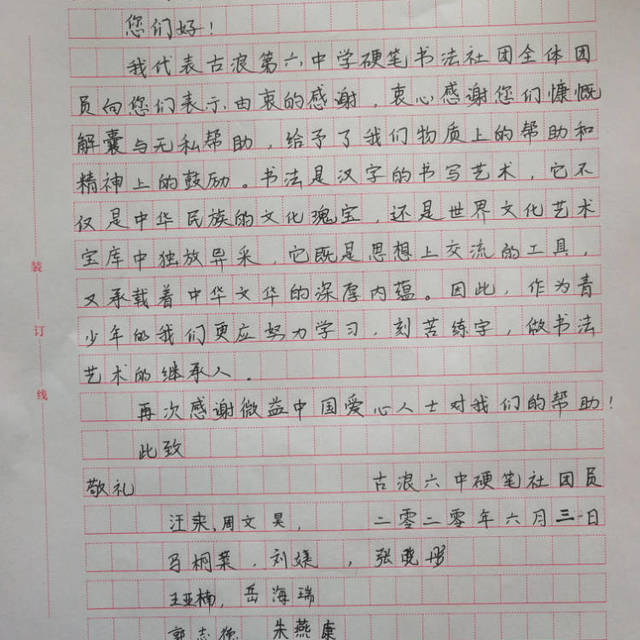 您们好！
我代表古浪第六中学硬笔书法社团全体团
员向您们表示由衷的感谢，衷心感谢您们慷慨
解囊与无私帮助，给予了我们物质上的帮助和
精神上的鼓励。书法是汉字的书写艺术，它不
仅是中华民族的文化瑰宝，还是世界文化艺术
宝库中独放异采，它既是思想上交流的工具，
又承载着中华文华的深厚内蕴。因此，作为青
少年的我们更应努力学习，刻苦练字，做书法
艺术的继承人。
再次感谢微益中国爱心人士对我们的帮助！
此致
敬礼 古浪六中硬笔社团员
汪 周文昊， 二零二零年六月三日
马桐 ，刘媄 ，张晓彤
王亚楠，岳海瑞
志 朱燕康
装
订
线